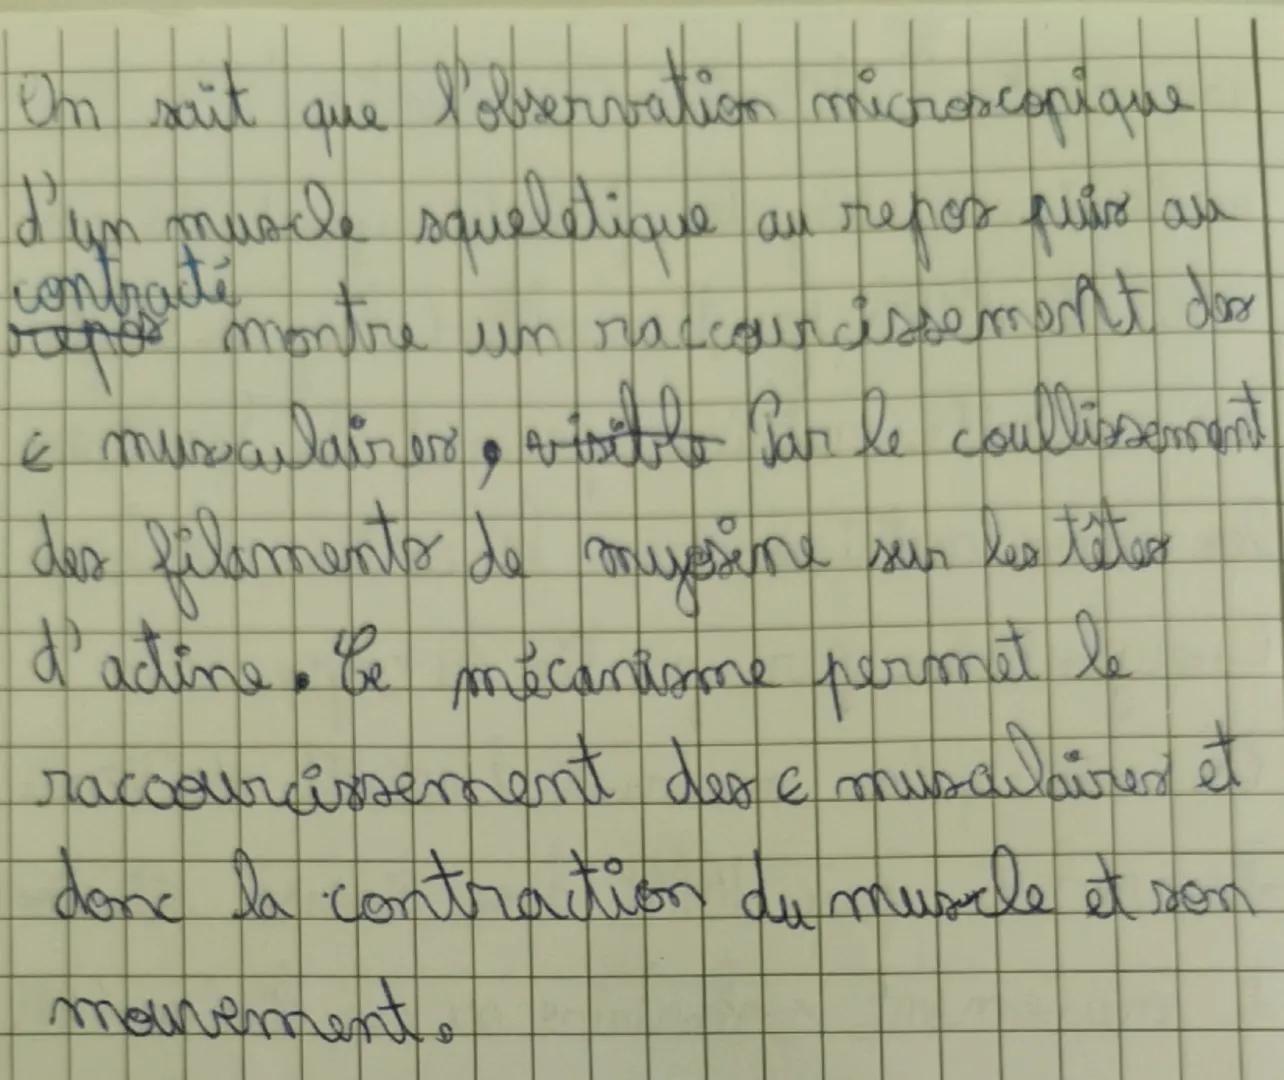 On sait que l'observation microscopique
d'un muscle squeletique au repos puis au
contracté
repos montre un raccourcissement des
€ musculaires, visible Par le coullissement
des filaments de myosine sur les têtes
d'actine. Ce mécanisme permet le
raccourcissement des € musculaires et
donc la contraction du muscle et son
mouvement.